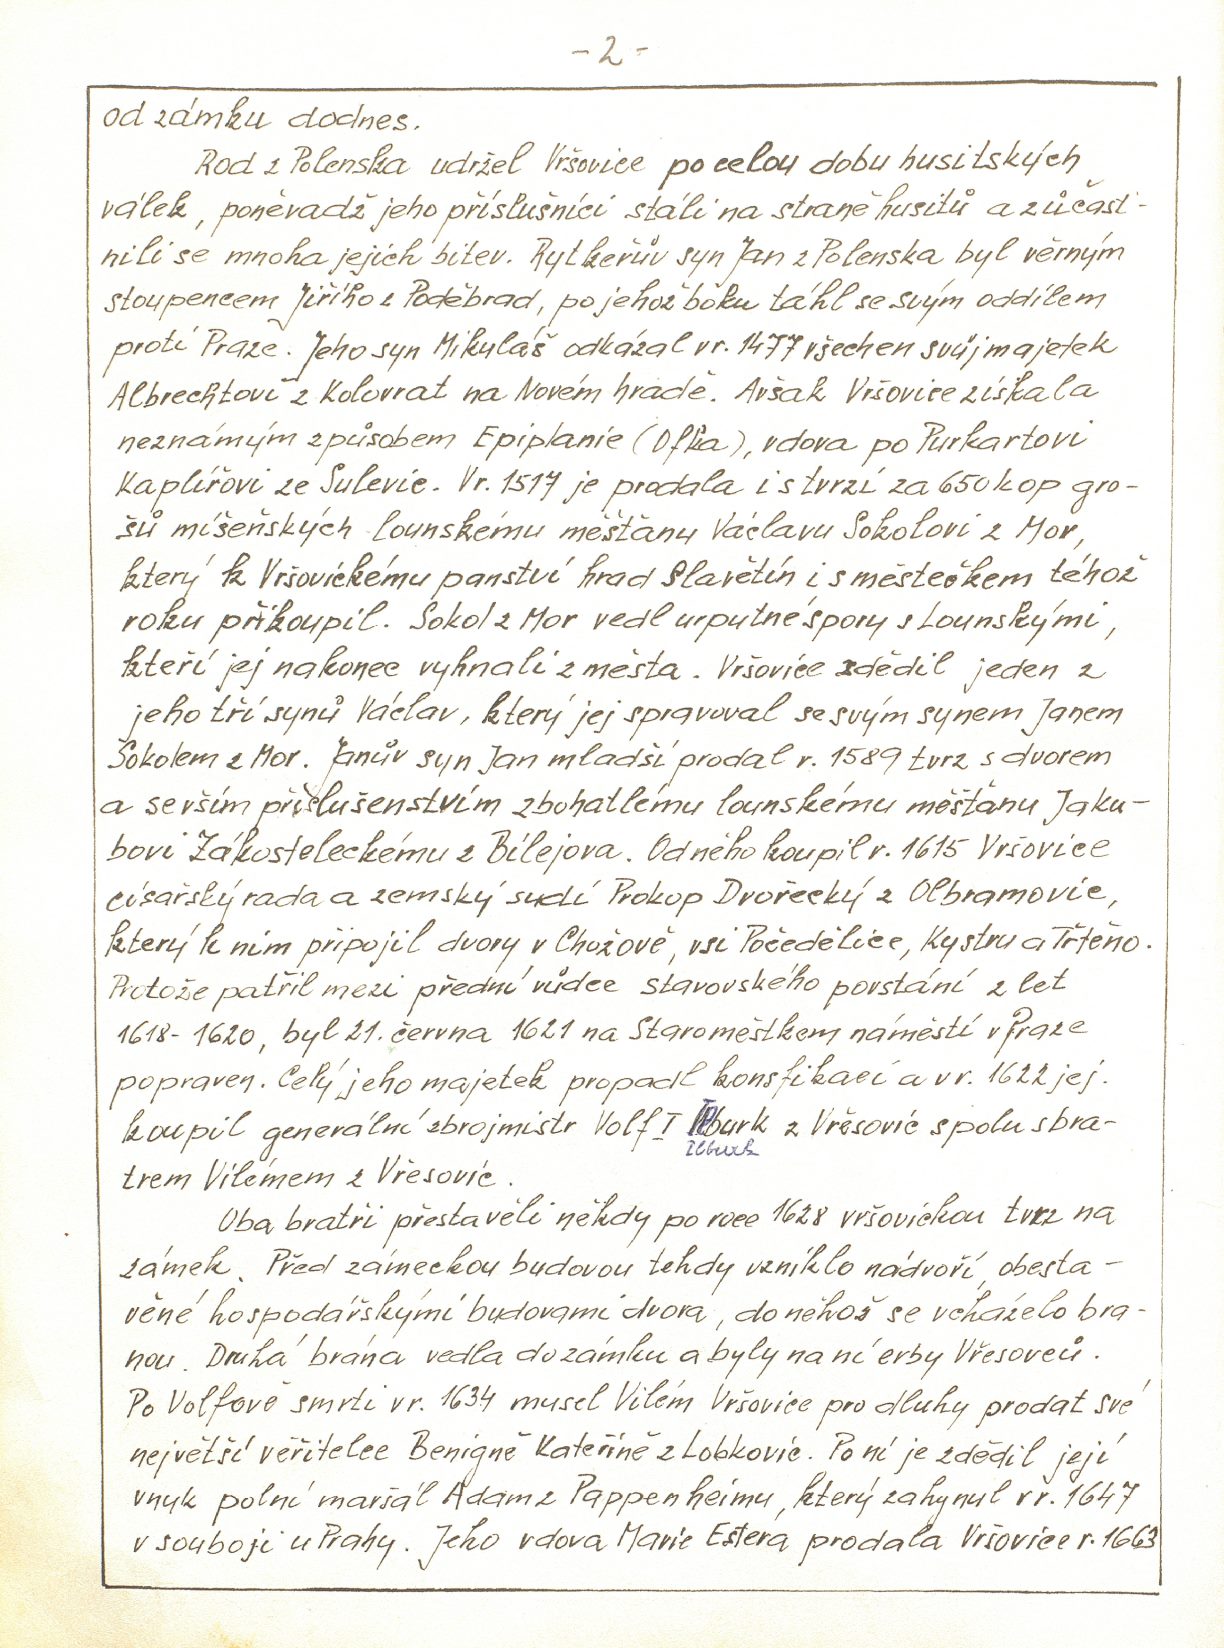 - 2 -
od zámku dodnes.
Rod z Polenska udržel Vršovice po celou dobu husitských
válek, poněvadž jeho příslušníci stáli na straně husitů a zúčast-
nili se mnoha jejich bitev. Rytkeřův syn Jan z Polenska byl věrným
stoupencem Jiřího z Poděbrad, po jehož boku táhl se svým oddílem
proti Praze. Jeho syn Mikuláš odkázal v r. 1477 všechen svůj majetek
Albrechtovi z Kolovrat na Novém hradě. Avšak Vršovice získala
neznámým způsobem Epiplanie (Ofka), vdova po Purkartovi
Kaplířovi ze Sulevic. V r. 1517 je prodala i s tvrzí za 650 kop gro-
šů míšeňských lounskému měšťanu Václavu Sokolovi z Mor,
který k Vršovickému panství hrad Slavětín i s městečkem téhož
roku přikoupil. Sokol z Mor vedl urputné spory s Lounskými,
kteří jej nakonec vyhnali z města. Vršovice zdědil jeden z
jeho tří synů Václav, který jej spravoval se svým synem Janem
Sokolem z Mor. Janův syn Jan mladší prodal r. 1589 tvrz s dvorem
a se vším příslušenstvím zbohatlému lounskému měšťanu Jaku-
bovi Zákosteleckému z Bílejova. Od něho koupil r. 1615 Vršovice
císařský rada a zemský sudí Prokop Dvořecký z Olbramovic,
který k nim připojil dvory v Chožově, vsi Počedělice, Kystru a Třtěno.
Protože patřil mezi přední vůdce stavovského povstání z let
1618 - 1620, byl 21. června 1621 na Staroměstkem náměstí v Praze
popraven. Celý jeho majetek propadl konsfikaci a v r. 1622 jej
koupil generální zbrojmistr Volf I Ilburk z Vřesovic spolu s bra-
Ilburk
trem Vilémem z Vřesovic.
Oba bratři přestavěli někdy po roce 1628 vršovickou tvrz na
zámek. Před zámeckou budovou tehdy vzniklo nádvoří, obesta-
věné hospodářskými budovami dvora, do něhož se vcházelo bra-
nou. Druhá brána vedla do zámku a byly na ní erby Vřesoveců.
Po Volfově smrti v r. 1634 musel Vilém Vršovice pro dluhy prodat své
největší věřitelce Benigně Kateřině z Lobkovic. Po ní je zdědil její
vnuk polní maršál Adam z Pappenheimu, který zahynul v r. 1647
v souboji u Prahy. Jeho vdova Marie Estera prodala Vršovice r. 1663